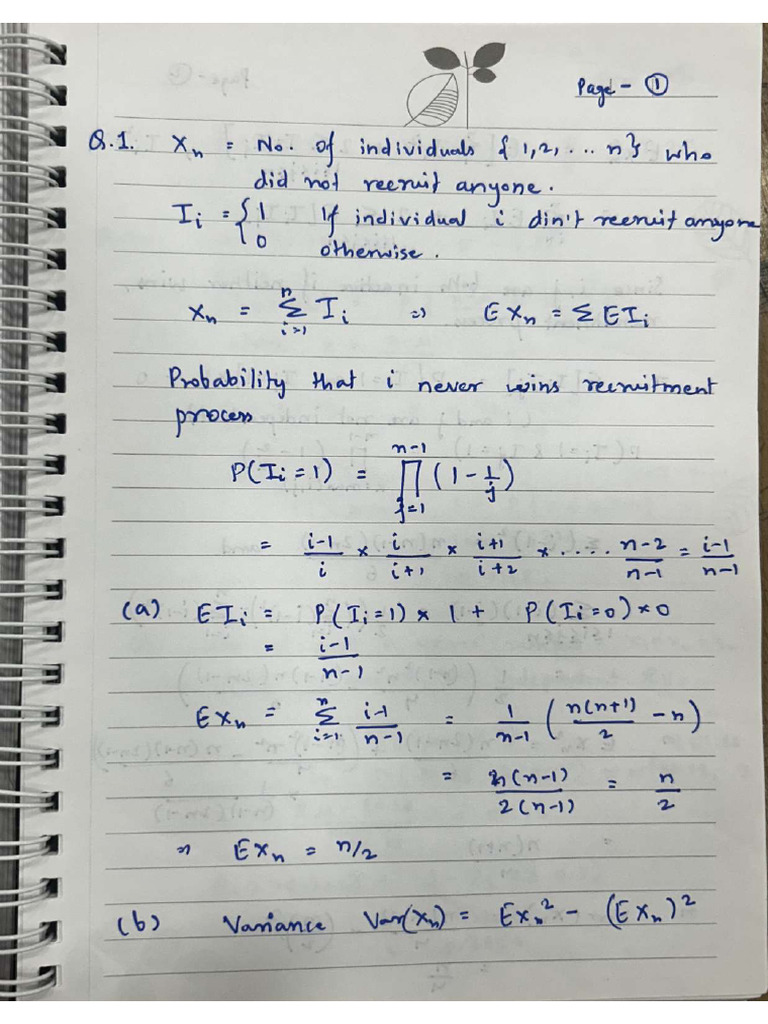 Page - ①
Q.1. Xₙ = No. of individuals {1,2, ... n} who
did not recruit anyone.
Iᵢ = { 1 If individual i din't recruit anyone
0 otherwise.
Xₙ = Σⁿᵢ₌₁ Iᵢ ⇒ E Xₙ = Σ E Iᵢ
Probability that i never wins recruitment
process
P(Iᵢ = 1) = ∏ⁿ⁻¹ⱼ₌₁ (1 - 1/j)
= i-1/i × i/i+1 × i+1/i+2 × ..... n-2/n-1 = i-1/n-1
(a) E Iᵢ = P(Iᵢ=1) × 1 + P(Iᵢ=0) × 0
= i-1/n-1
E Xₙ = Σⁿᵢ₌₁ i-1/n-1 = 1/n-1 ( n(n+1)/2 - n )
= n(n-1)/2(n-1) = n/2
⇒ E Xₙ = n/2
(b) Variance Var(Xₙ) = E Xₙ² - (E Xₙ)²